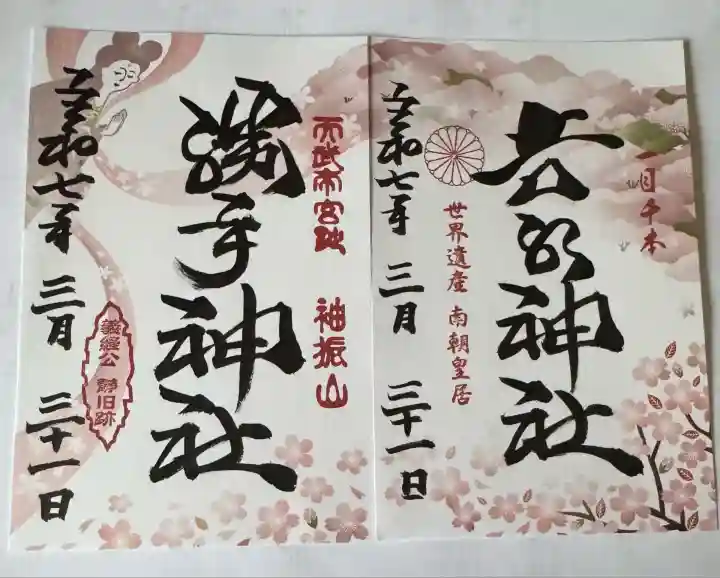 一目千本
吉水神社
世界遺産 南朝皇居
令和七年 三月 三十一日
天武帝宮跡 袖振山
勝手神社
義經公 静旧跡
令和七年 三月 三十一日